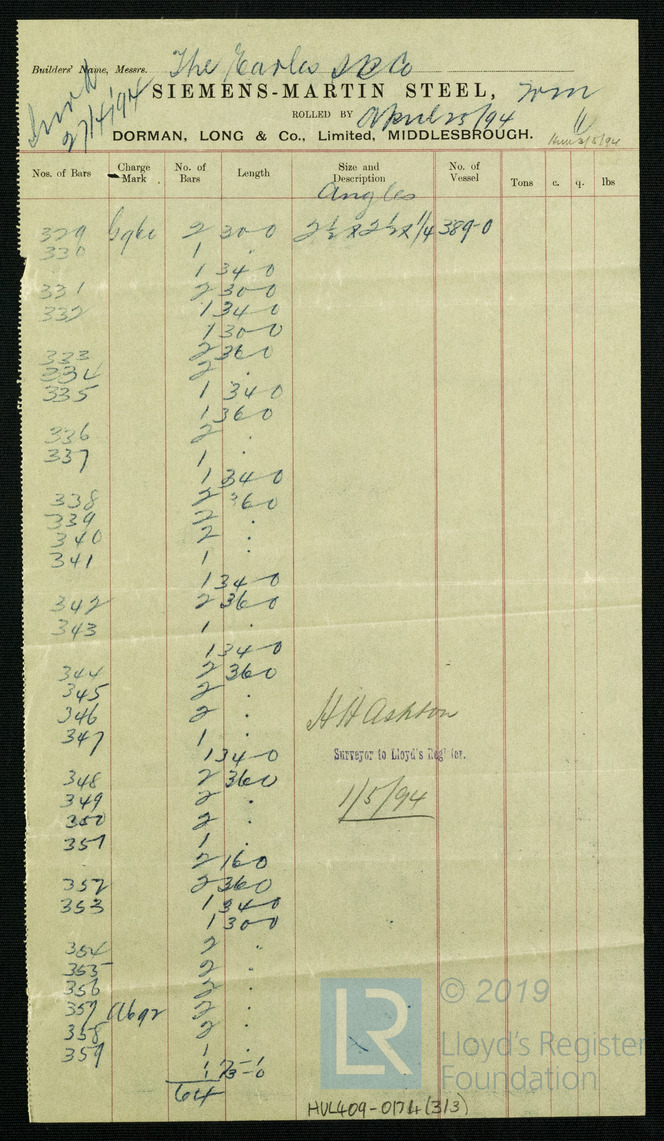 Builders' Name, Messrs. The Earles S & E Co
27/4/94
SIEMENS-MARTIN STEEL,
ROLLED BY April 25/94
DORMAN, LONG & Co., Limited, MIDDLESBROUGH.
2/5/94
Nos. of Bars Charge Mark No. of Bars Length Size and Description No. of Vessel Tons c. q. lbs
Angles
329 2 30-0 2½ x 2½ x 1/4 389-0
330 1 "
1 34-0
331 2 30-0
332 1 34-0
1 30-0
333 2 36-0
334 2 "
335 1 34-0
1 36-0
336 2 "
337 1 "
1 34-0
338 2 36-0
339 2 "
340 2 "
341 1 "
1 34-0
342 2 36-0
343 1 "
1 34-0
344 2 36-0
345 2 "
346 2 "
347 1 "
1 34-0
348 2 36-0
349 2 "
350 2 "
351 1 "
2 16-0
352 2 36-0
353 1 34-0
1 30-0
354 2 "
355 2 "
356 2 "
357 2 "
358 2 "
359 1 "
1
64
H H Ashton
Surveyor to Lloyd's Register.
1/5/94
LR © 2019
Lloyd's Register
Foundation
HUL409-0174(3/3)